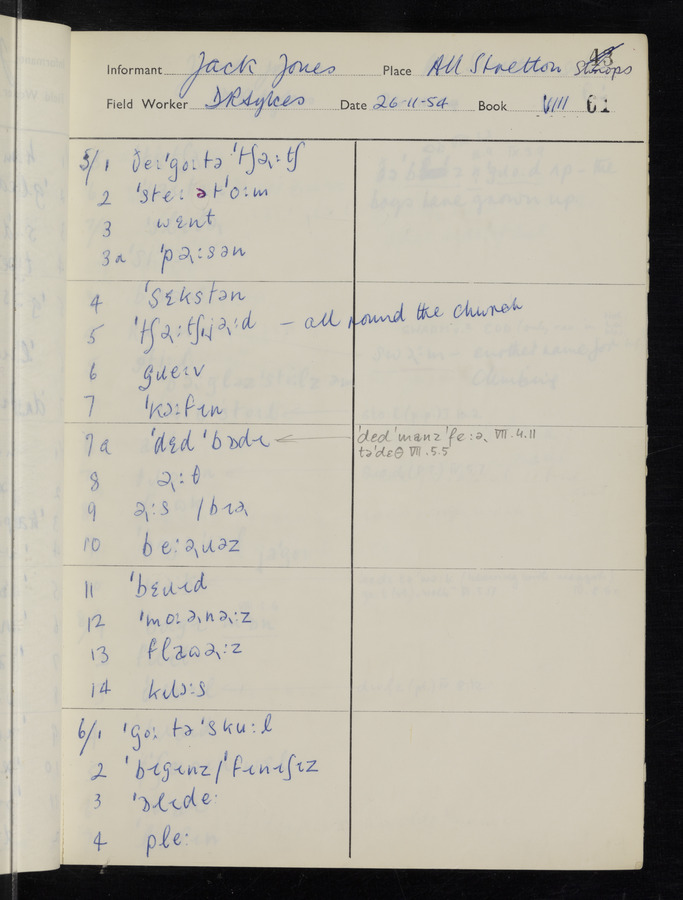 Informant Jack Jones Place All Stretton Salops
Field Worker DRSykes Date 26-11-54 Book VIII 61
5/1 ðeɪˈgoːtə ˈtʃəɹːtʃ
2 ˈsteː ətˈoːm
3 wɛnt
3a ˈpəɹːsən
4 ˈsɛkstən
5 ˈtʃəɹːtʃɪjəɹːd – all round the church
6 gɹeːv
7 ˈkɔːfɪn
7a ˈdɛd ˈbɒdɪ ← ˈdɛd ˈmanz ˈfeːəɹ VII.4.11
təˈdɛθ VII.5.5
8 əɹːθ
9 əɹːs / bɪəɹ
10 beːəɹɹəz
11 ˈbɛɹɪd
12 ˈmoːəɹnəɹːz
13 flaʊəɹːz
14 kɹɔːs
6/1 ˈgoː tə ˈskuːl
2 ˈbɪgɪnz / ˈfɪnɪʃɪz
3 ˈɒlɪdeː
4 pleː